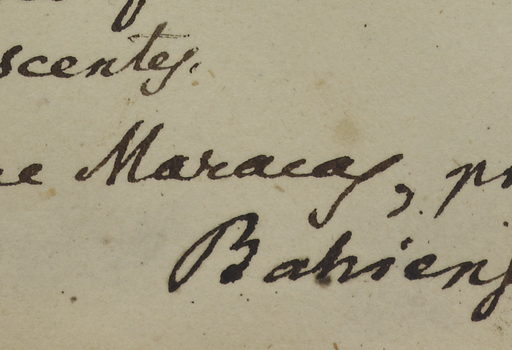 scentes.
ae Maracas, pr
Bahiens